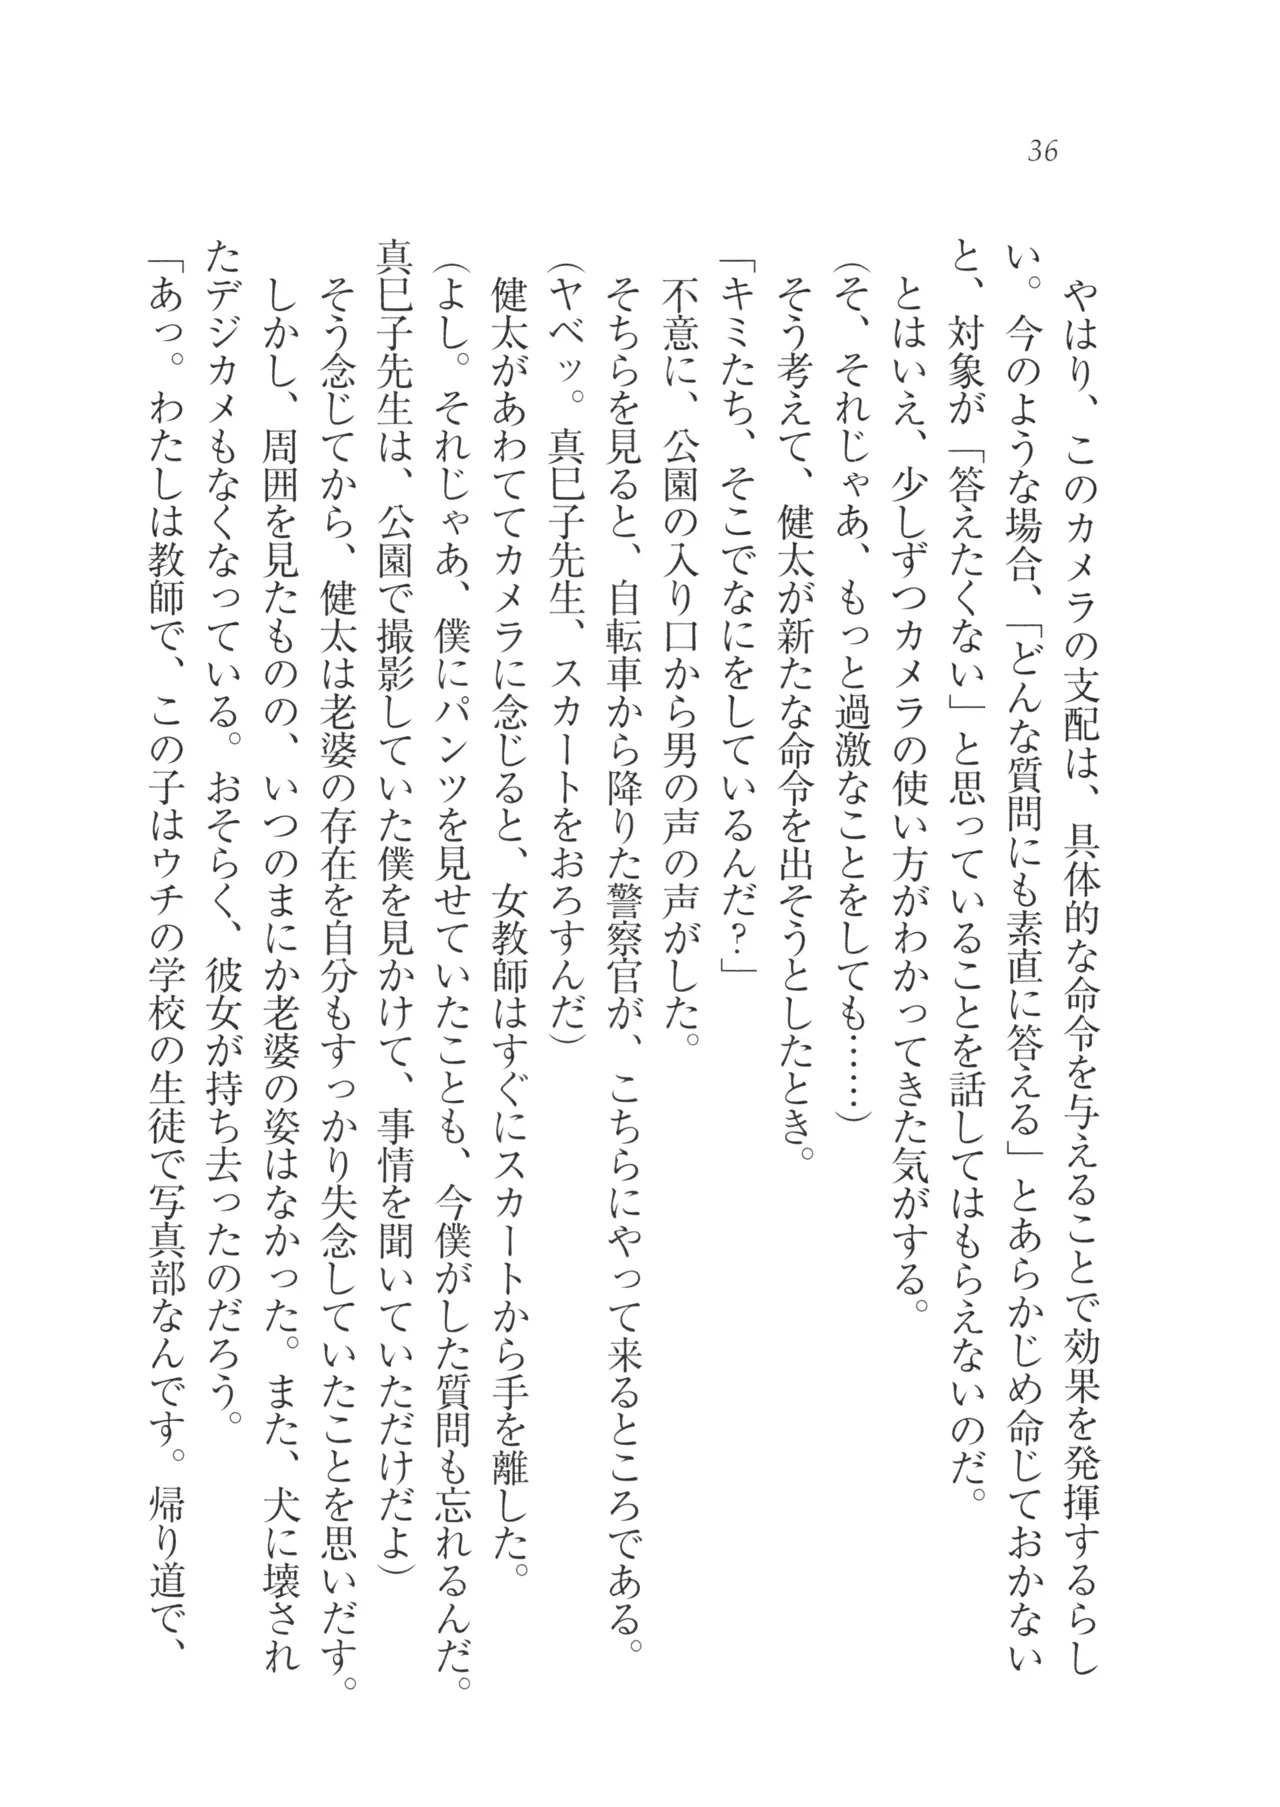 36
　やはり、このカメラの支配は、具体的な命令を与えることで効果を発揮するらし
い。今のような場合、「どんな質問にも素直に答える」とあらかじめ命じておかない
と、対象が「答えたくない」と思っていることを話してはもらえないのだ。
　とはいえ、少しずつカメラの使い方がわかってきた気がする。
（そ、それじゃあ、もっと過激なことをしても……）
　そう考えて、健太が新たな命令を出そうとしたとき。
「キミたち、そこでなにをしているんだ？」
　不意に、公園の入り口から男の声の声がした。
　そちらを見ると、自転車から降りた警察官が、こちらにやって来るところである。
（ヤベッ。真巳子先生、スカートをおろすんだ）
　健太があわててカメラに念じると、女教師はすぐにスカートから手を離した。
（よし。それじゃあ、僕にパンツを見せていたことも、今僕がした質問も忘れるんだ。
真巳子先生は、公園で撮影していた僕を見かけて、事情を聞いていただけだよ）
　そう念じてから、健太は老婆の存在を自分もすっかり失念していたことを思いだす。
　しかし、周囲を見たものの、いつのまにか老婆の姿はなかった。また、犬に壊され
たデジカメもなくなっている。おそらく、彼女が持ち去ったのだろう。
「あっ。わたしは教師で、この子はウチの学校の生徒で写真部なんです。帰り道で、